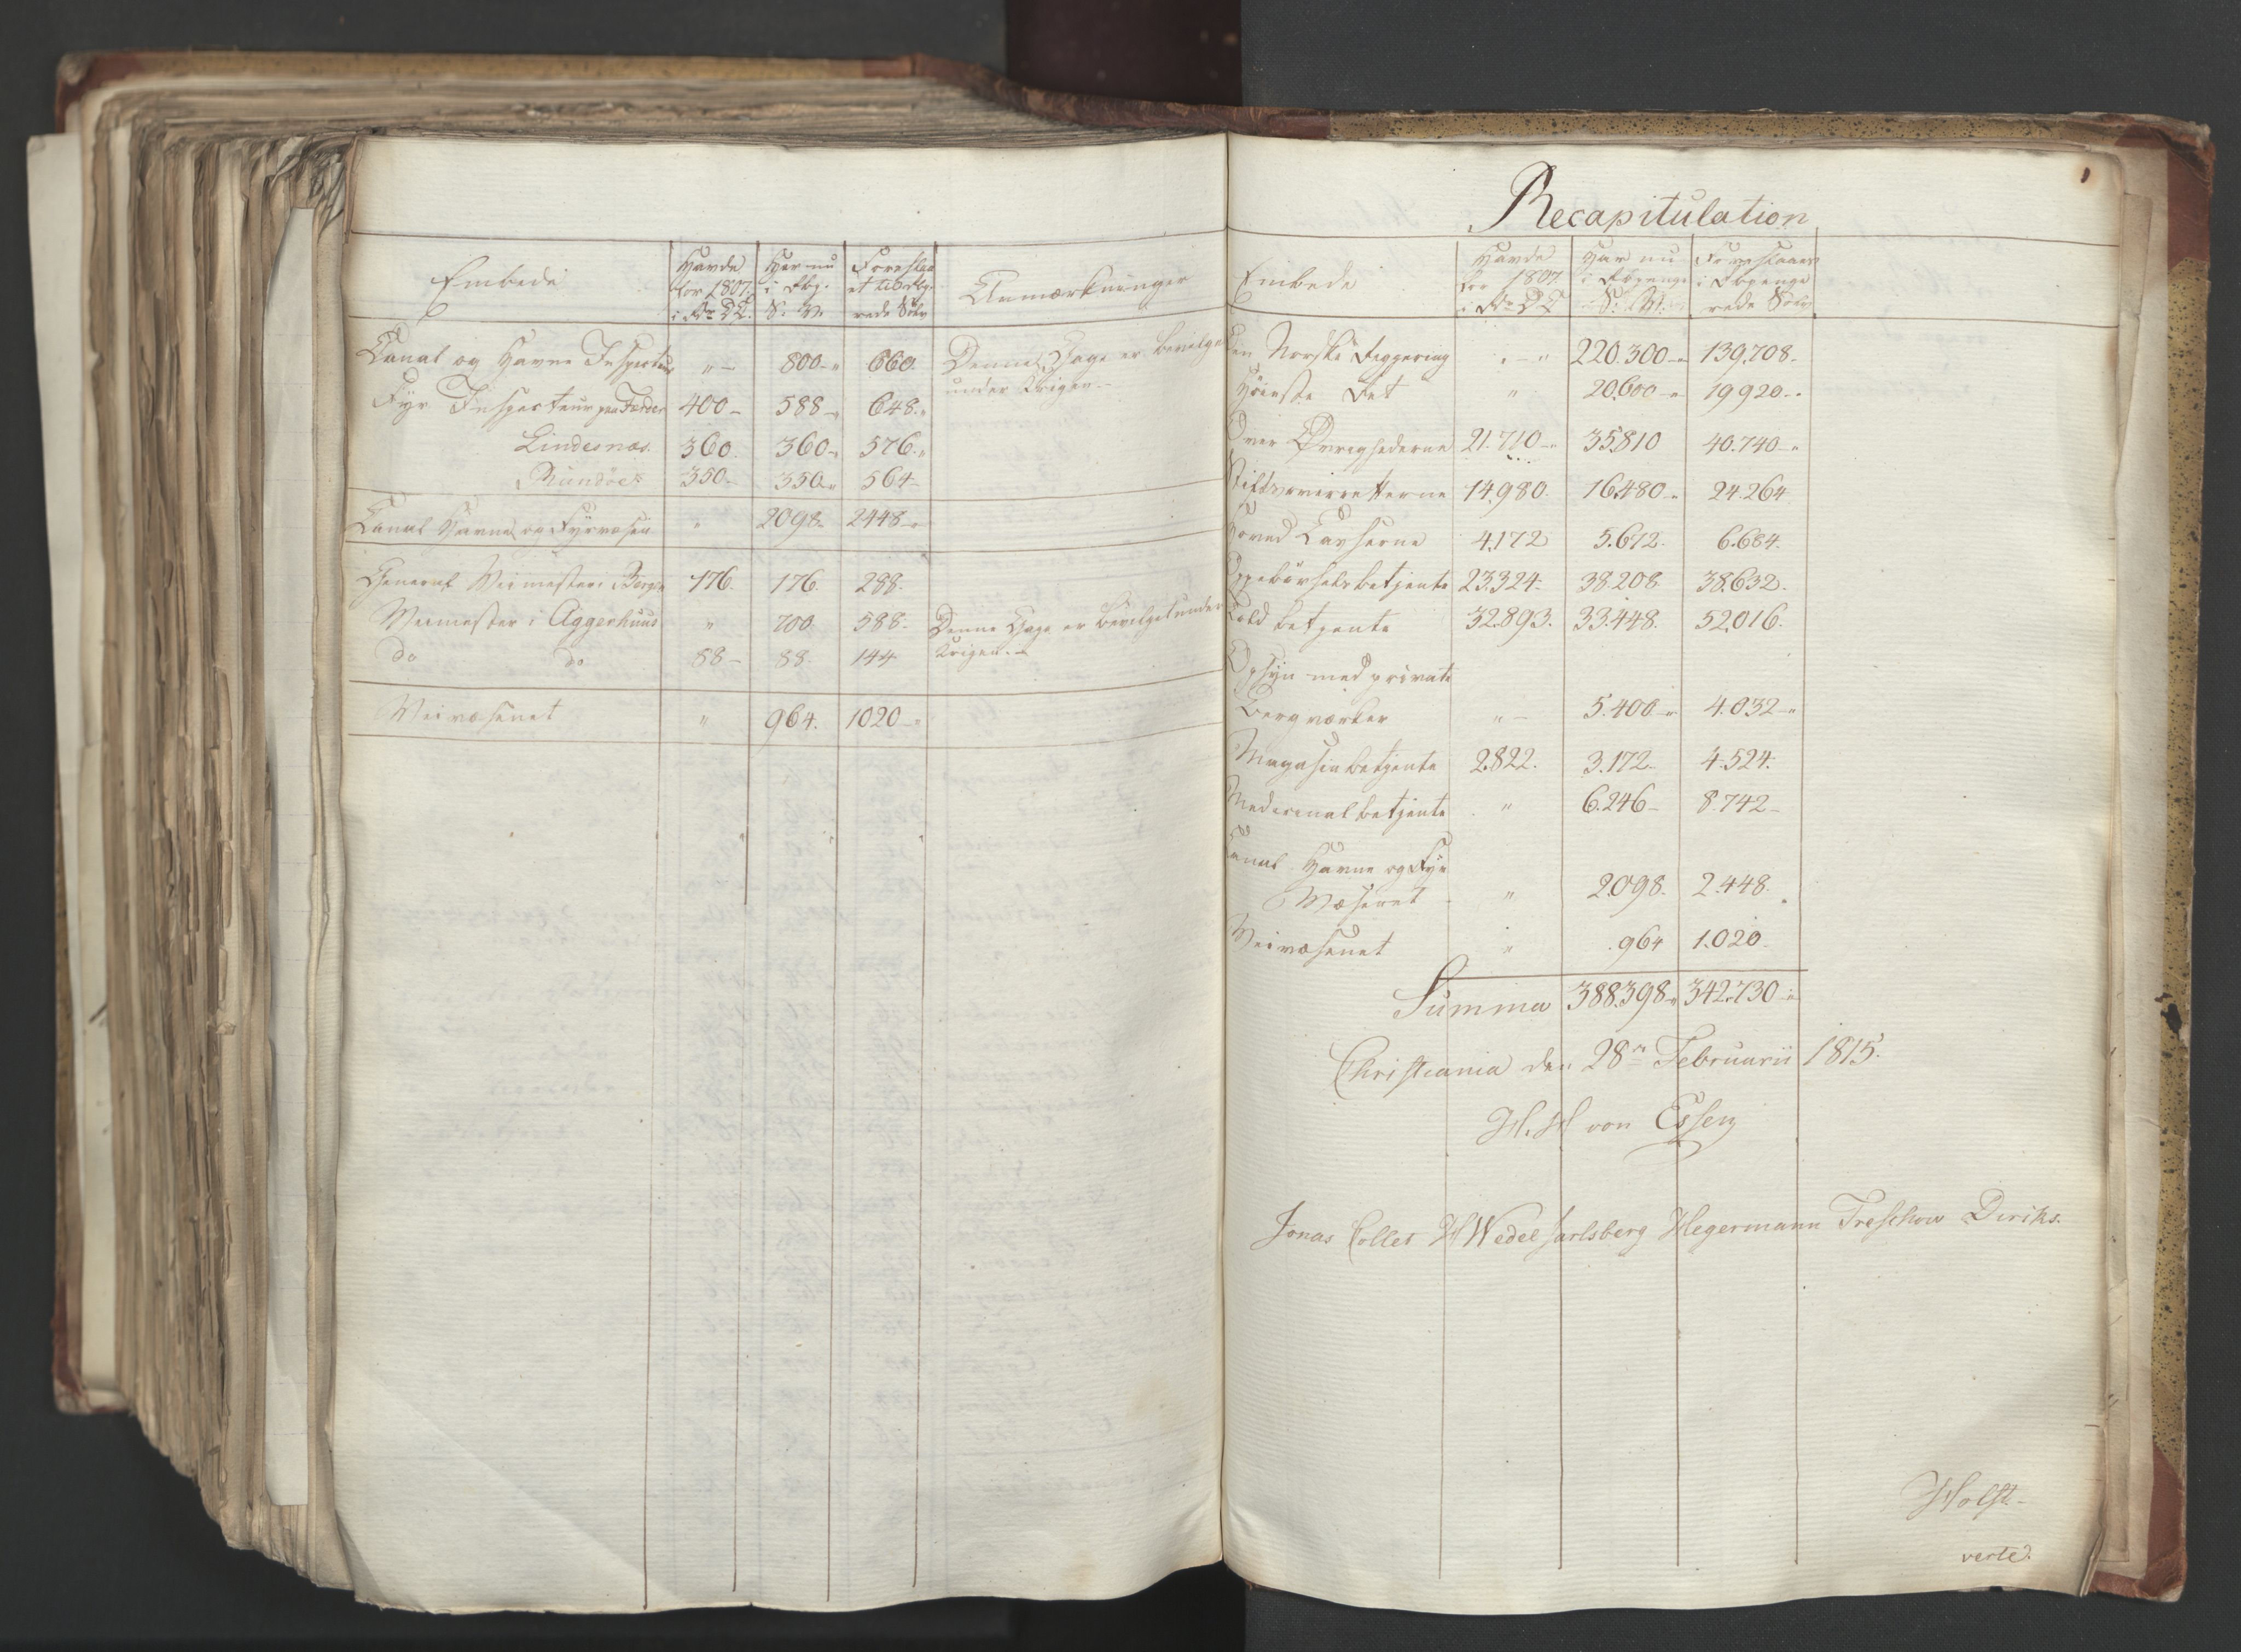 Embede
Havde for 1807 i Dr DC.
Har nu i Rbp. S. V.
Foreslaaet Sølv
Anmærkninger
Canal og Havne Inspecteur " — 800 — " 660. Denne Gage er bevilget
under Krigen. —
Fyr Inspecteur paa Færder 400 — 588 — " 648. "
Lindesnæs. 360. 360 — " 576. "
Rundöe 350. 350 — " 564 —
Canal Havne og Fyrvæsen " 2098. 2448 — "
General Veimester i Bergen 176. 176. 288.
Veimester i Aggerhuus " 700. 588. Denne Gage er bevilget under
do do 88 — 88. 144 Krigen. —
Veivæsenet " 964. 1020 — "
Recapitulation
Embede
Havde for 1807 i Dr DC
Har nu i Rbpenge S: V:
Foreslaaes i Rbpenge rede Sölv
Den Norske Regjering " — " 220.300 — " 139.708 —
Höieste Ret " 20.600 — " 19920 — "
Over Övrighederne 21.710 — " 35810 40.740 — "
Stiftsoverretterne 14.980. 16.480 — " 24.264
Hoved Casserne 4.172 5.672. 6.684.
Oppebörselsbetjente 23.324. 38.208 38.632.
Told betjente 32.893. 33.448. 52.016.
Opsyn med private
Bergværker " — 5.400 — " 4.032 — "
Magasinbetjente 2.822. 3.172 — 4.524.
Medicinalbetjente " 6.246 — 8.742 —
Canal Havne og Fyr
Væsenet " 2.098. 2.448.
Veivæsenet " .964 1.020 —
Summa 388.398 — " 342.730 — "
Christiania den 28de Februarii 1815.
H. H von Essen
Jonas Collet H Wedel Jarlsberg Hegermann Treschow Diriks.
Holst —
verte.